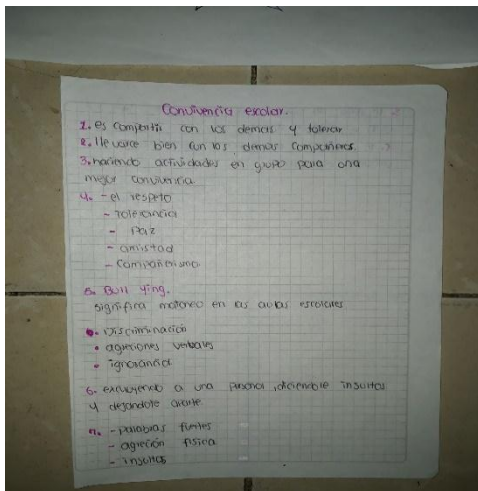 Convivencia escolar.
1. es compartir con los demas y tolerar
2. llevarce bien con los demas compañeros
3. haciendo actividades en grupo para una
mejor convivencia
4. - el respeto
- tolerancia
- Paz
- amistad
- compañerismo.
5. Bull ying.
significa matoneo en las aulas escolares
• Discriminación
• agreciones verbales
• ignorancia
6. excluyendo a una persona, diciendole insultos
y dejandole aparte
7. - palabras fuertes
- agreción fisica
- insultos